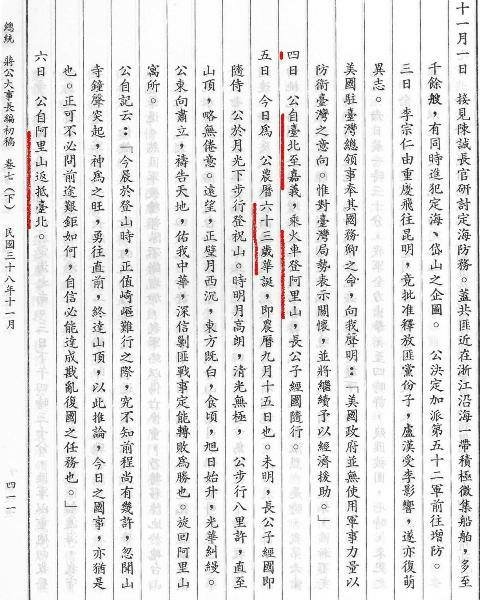 十一月一日　接見陳誠長官研討定海防務。蓋共匪近在浙江沿海一帶積極徵集船舶，多至
千餘艘，有同時進犯定海、岱山之企圖。　公決定加派第五十二軍前往增防。
三日　李宗仁由重慶飛往昆明，竟批准釋放匪黨份子，盧漢受李影響，遂亦復萌
異志。
美國駐臺灣總領事奉其國務卿之命，向我聲明：「美國政府並無使用軍事力量以
防衛臺灣之意向。惟對臺灣局勢表示關懷，並將繼續予以經濟援助。」
四日　公自臺北至嘉義，乘火車登阿里山，長公子經國隨行。
五日　今日為　公農曆六十三歲華誕，即農曆九月十五日也。未明，長公子經國即
隨侍　公於月光下步行登祝山。時明月高朗，清光無極，　公步行八里許，直至
山頂，略無倦意。遠望，正璧月西沉，東方既白，食頃，旭日始升，光華糾縵。
公東向肅立，禱告天地，佑我中華，深信剿匪戰事定能轉敗為勝也。旋回阿里山
寓所。
公自記云：「今晨於登山時，正值崎嶇難行之際，究不知前程尚有幾許，忽聞山
寺鐘聲突起，神為之旺，勇往直前，終達山頂，以此推論，今日之國事，亦猶是
也。正可不必問前途艱鉅如何，自信必能達成戡亂復國之任務也。」
六日　公自阿里山返抵臺北。
總統　蔣公大事長編初稿　卷七（下）　民國三十八年十一月
四一一